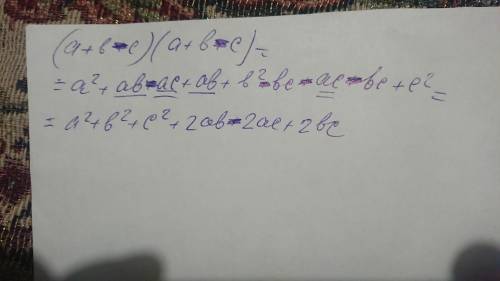 (a+b-c)(a+b-c)=
=a²+ab-ac+ab+b²-bc-ac-bc+c²=
=a²+b²+c²+2ab-2ac+2bc